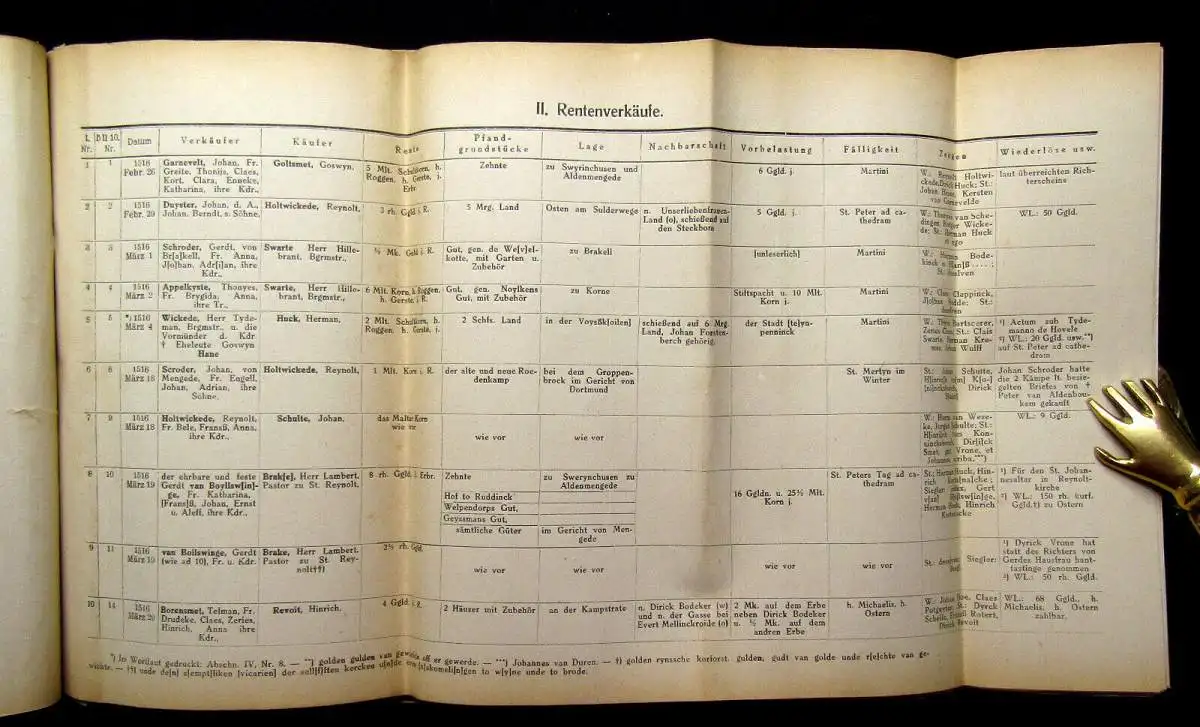 II. Rentenverkäufe.
L. Nr. B II 10. Nr. Datum Verkäufer Käufer Rente Pfand-grundstücke Lage Nachbarschaft Vorbelastung Fälligkeit Zeugen Wiederlöse usw.
1 1 1516 Febr. 26
Garnevelt, Johan, Fr.
Greite, Thonijs, Claes,
Kort, Clara, Enneke,
Katharina, ihre Kdr.,
Goltsmet, Goswyn.
5 Mlt. Schultkorn, h.
Roggen, h. Gerste, i.
Erbr.
Zehnte
zu Swyrinchusen und
Aldenmengede
6 Ggld. j.
Martini
laut überreichten Rich-
terscheins
2 2 1516 Febr. 29
Duyster, Johan, d. A.,
Johan, Berndt, s. Söhne,
Holtwickede, Reynolt,
3 rh. Ggld. i. R.
5 Mrg. Land
Osten am Sulderwege
n. Unserliebenfrauen-
Land (o), schießend auf
den Steckborn
5 Ggld. j.
St. Peter ad ca-
thedram
WL.: 50 Ggld.
3 3 1516 März 1
Schroder, Gerdt, von
Br[a]kell, Fr. Anna,
J[o]han, Adr[i]an, ihre
Kdr.,
Swarte Herr Hille-
brant, Bgrmstr.,
½ Mk. Geld i. R.
Gut, gen. de We[v]el-
kotte, mit Garten u.
Zubehör
zu Brakell
[unleserlich]
Martini
4 4 1516 März 2
Appelkyste, Thonyes,
Fr. Brygida, Anna,
ihre Tr.,
Swarte, Herr Hille-
brant, Brgmstr.,
6 Mlt. Korn, h. Roggen,
h. Gerste, i. R.
Gut, gen. Noylkens
Gut, mit Zubehör
zu Korne
Stiftspacht u. 10 Mlt.
Korn j.
Martini
5 5 *) 1516 März 4
Wickede, Herr Tyde-
man, Brgmstr., u. die
Vormünder d. Kdr
† Eheleute Goswyn
Hane
Huck, Herman,
2 Mlt. Schultkorn, h.
Roggen, h. Gerste, j.
2 Schfs. Land
in der Voysßk[oilen]
schießend auf 6 Mrg.
Land, Johan Forsten-
berch gehörig,
der Stadt [te]yn-
penninck
Martini
¹) Actum sub Tyde-
manno de Hovele
²) WL.: 20 Ggld. usw.**)
auf St. Peter ad cathe-
dram
6 6 1516 März 18
Scroder, Johan, von
Mengede, Fr. Engell,
Johan, Adrian, ihre
Söhne,
Holtwickede, Reynolt,
1 Mlt. Korn i. R.
der alte und neue Roe-
denkamp
bei dem Groppen-
brock im Gericht von
Dortmund
St. Mertyn im
Winter
Johan Schroder hatte
die 2 Kämpe lt. besie-
gelten Briefes von †
Peter van Aldenbou-
kem gekauft
7 9 1516 März 18
Holtwickede, Reynolt,
Fr. Bele, Fransß, Anna,
ihre Kdr.,
Schulte, Johan,
das Malter Korn
wie vor
wie vor
wie vor
WL.: 9 Ggld.
8 10 1516 März 19
der ehrbare und feste
Gerdt van Boylsw[in]-
ge, Fr. Katharina,
[Frans]ß, Johan, Ernst
u. Aleff, ihre Kdr.,
Brak[e], Herr Lambert,
Pastor zu St. Reynolt,
8 rh. Ggld. i. Erbr.
Zehnte
Hof to Ruddinck
Welpendorps Gut,
Geyssmans Gut,
sämtliche Güter
zu Swerynchusen zu
Aldenmengede
im Gericht von Men-
gede
16 Ggldn. u. 25½ Mlt.
Korn j.
St. Peters Tag ad ca-
thedram
¹) Für den St. Johan-
nesaltar in Reynolt-
kirche
²) WL.: 150 rh. kurf.
Ggld.†) zu Ostern
9 11 1516 März 19
van Boilswinge, Gerdt
(wie ad 10), Fr. u. Kdr.
Brake, Herr Lambert,
Pastor zu St. Rey-
nolt††)
2½ rh. Ggld.
wie vor
wie vor
wie vor
wie vor
¹) Dyrick Vrone hat
statt des Richters von
Gerdes Hausfrau hant-
tastinge genommen
²) WL.: 50 rh. Ggld.
10 14 1516 März 20
Borensmet, Telman, Fr.
Drudeke, Claes, Zeries,
Hinrich, Anna ihre
Kdr.,
Revoit, Hinrich.
4 Ggld. i. R.
2 Häuser mit Zubehör
an der Kampstrate
n. Dirick Bodeker (w)
und n. der Gasse bei
Evert Mellinckroide (o)
2 Mk. auf dem Erbe
neben Dirick Bodeker
u. ½ Mk. auf dem
andren Erbe
h. Michaelis, h.
Ostern
WL.: 68 Ggld., h.
Michaelis, h. Ostern
zahlbar.
*) Im Wortlaut gedruckt: Abschn. IV, Nr. 8. — **) golden gulden van gewichte off er gewerde. — ***) Johannes van Duren. — †) golden rynssche korforst. gulden, gudt van golde und r[e]chte van ge-
wichte. — ††) unde de[n] s[empt]liken [vicarien] der sel[f]ften kercken